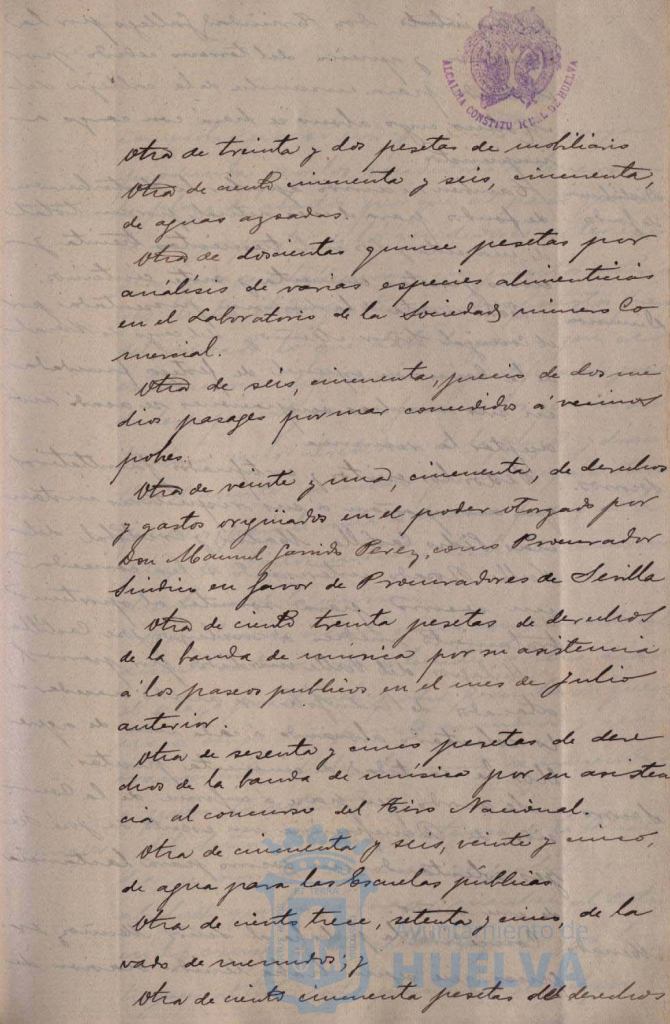 ALCALDIA CONSTITUCIONAL DE HUELVA
Otra de treinta y dos pesetas de mobiliario
Otra de ciento cincuenta y seis, cincuenta,
de aguas agsadas.
Otra de doscientas quince pesetas por
análisis de varias especies alimenticias
en el Laboratorio de la Sociedad minero Co
mercial.
Otra de seis, cincuenta, precio de dos me
dios pasages por mar concedidos á vecinos
pobres.
Otra de veinte y una, cincuenta, de derechos
y gastos originados en el poder otorgado por
Don Manuel Garrido Perez, como Procurador
Sindico en favor de Procuradores de Sevilla
Otra de ciento treinta pesetas de derechos
de la banda de música por su asistencia
á los paseos publicos en el mes de Julio
anterior.
Otra de sesenta y cinco pesetas de dere
chos de la banda de música por su asisten
cia al concurso del Tiro Nacional.
Otra de cincuenta y seis, veinte y cinco,
de agua para las Escuelas públicas
Otra de ciento trece, setenta y cinco, de la
vado de menudos; y
Otra de ciento cincuenta pesetas de derechos
Ayuntamiento de
HUELVA